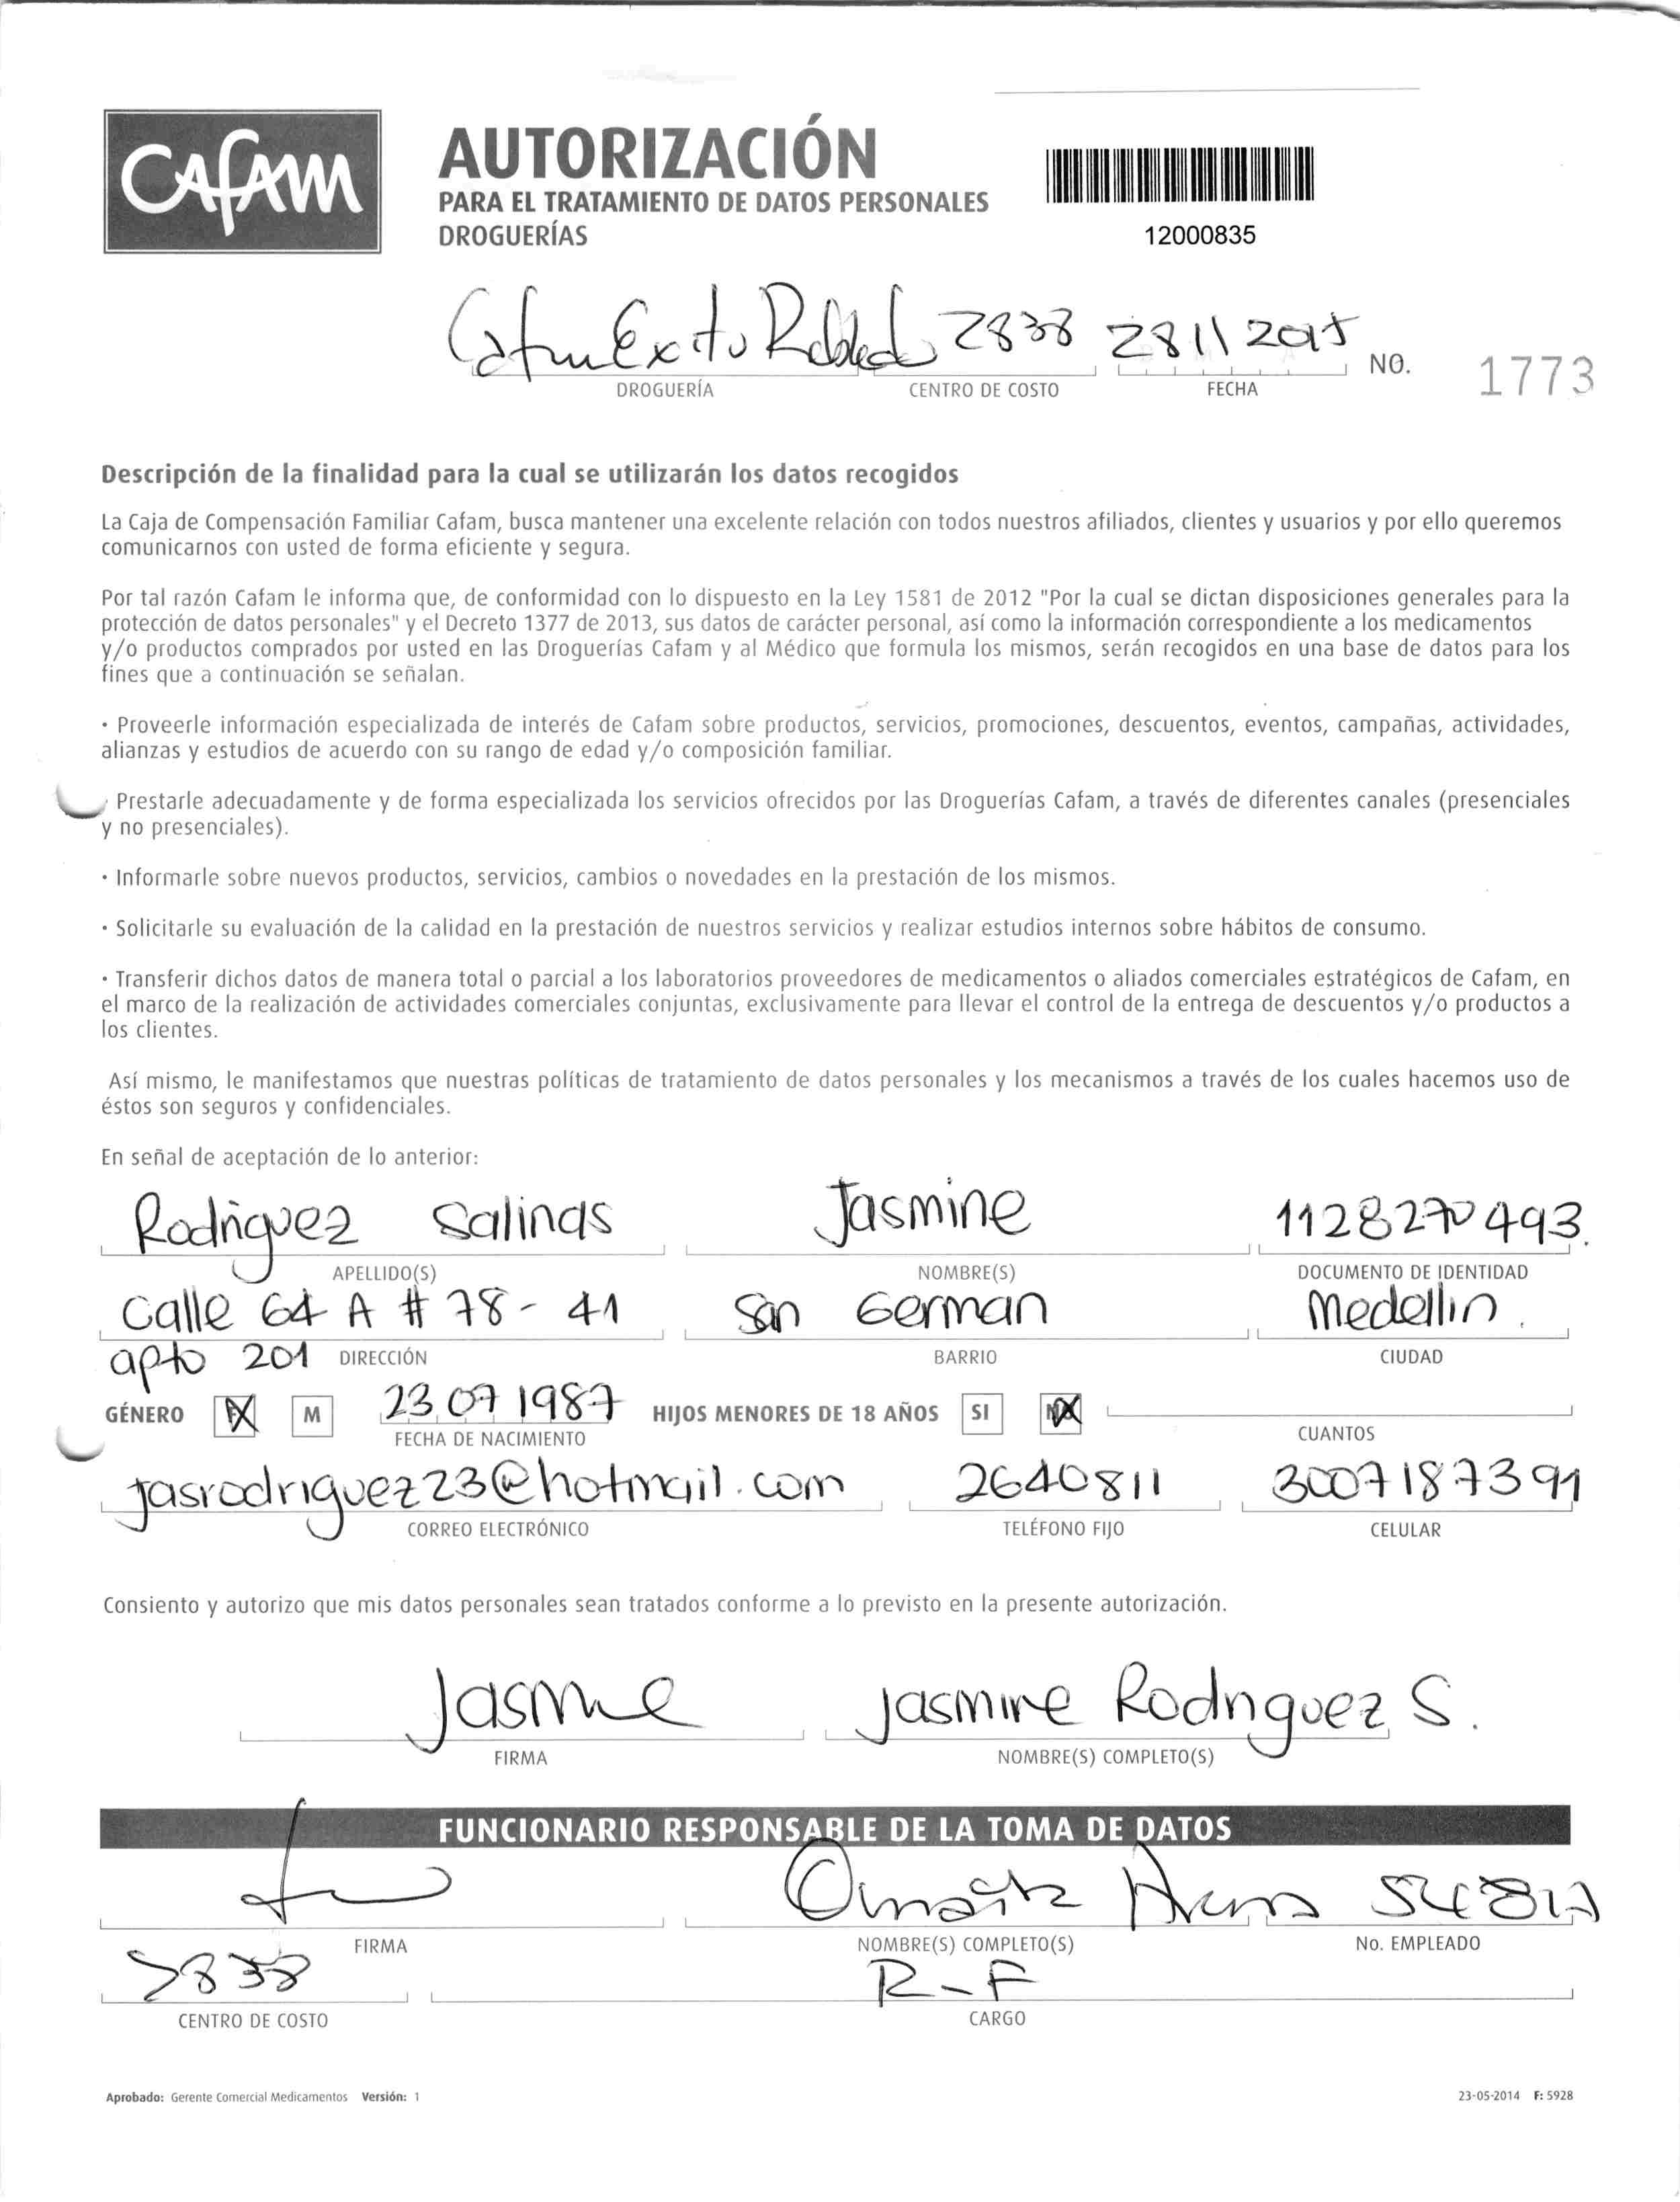 CAFAM
AUTORIZACIÓN
PARA EL TRATAMIENTO DE DATOS PERSONALES
DROGUERÍAS
12000835
Cafam Exito Robledo 2838 28 11 2015 NO. 1773
DROGUERÍA CENTRO DE COSTO FECHA
Descripción de la finalidad para la cual se utilizarán los datos recogidos
La Caja de Compensación Familiar Cafam, busca mantener una excelente relación con todos nuestros afiliados, clientes y usuarios y por ello queremos
comunicarnos con usted de forma eficiente y segura.
Por tal razón Cafam le informa que, de conformidad con lo dispuesto en la Ley 1581 de 2012 "Por la cual se dictan disposiciones generales para la
protección de datos personales" y el Decreto 1377 de 2013, sus datos de carácter personal, así como la información correspondiente a los medicamentos
y/o productos comprados por usted en las Droguerías Cafam y al Médico que formula los mismos, serán recogidos en una base de datos para los
fines que a continuación se señalan.
· Proveerle información especializada de interés de Cafam sobre productos, servicios, promociones, descuentos, eventos, campañas, actividades,
alianzas y estudios de acuerdo con su rango de edad y/o composición familiar.
· Prestarle adecuadamente y de forma especializada los servicios ofrecidos por las Droguerías Cafam, a través de diferentes canales (presenciales
y no presenciales).
· Informarle sobre nuevos productos, servicios, cambios o novedades en la prestación de los mismos.
· Solicitarle su evaluación de la calidad en la prestación de nuestros servicios y realizar estudios internos sobre hábitos de consumo.
· Transferir dichos datos de manera total o parcial a los laboratorios proveedores de medicamentos o aliados comerciales estratégicos de Cafam, en
el marco de la realización de actividades comerciales conjuntas, exclusivamente para llevar el control de la entrega de descuentos y/o productos a
los clientes.
Así mismo, le manifestamos que nuestras políticas de tratamiento de datos personales y los mecanismos a través de los cuales hacemos uso de
éstos son seguros y confidenciales.
En señal de aceptación de lo anterior:
Rodriguez Salinas Jasmine 1128270493.
APELLIDO(S) NOMBRE(S) DOCUMENTO DE IDENTIDAD
Calle 64 A # 78 - 41 San German Medellin.
apto 201 DIRECCIÓN BARRIO CIUDAD
GÉNERO F M 23 07 1987 HIJOS MENORES DE 18 AÑOS SI NO
FECHA DE NACIMIENTO CUANTOS
jasrodriguez23@hotmail.com 2640811 3007187391
CORREO ELECTRÓNICO TELÉFONO FIJO CELULAR
Consiento y autorizo que mis datos personales sean tratados conforme a lo previsto en la presente autorización.
Jasmine Jasmine Rodriguez S.
FIRMA NOMBRE(S) COMPLETO(S)
FUNCIONARIO RESPONSABLE DE LA TOMA DE DATOS
FIRMA NOMBRE(S) COMPLETO(S) No. EMPLEADO
2838 R-F
CENTRO DE COSTO CARGO
Aprobado: Gerente Comercial Medicamentos Versión: 1 23-05-2014 F: 5928